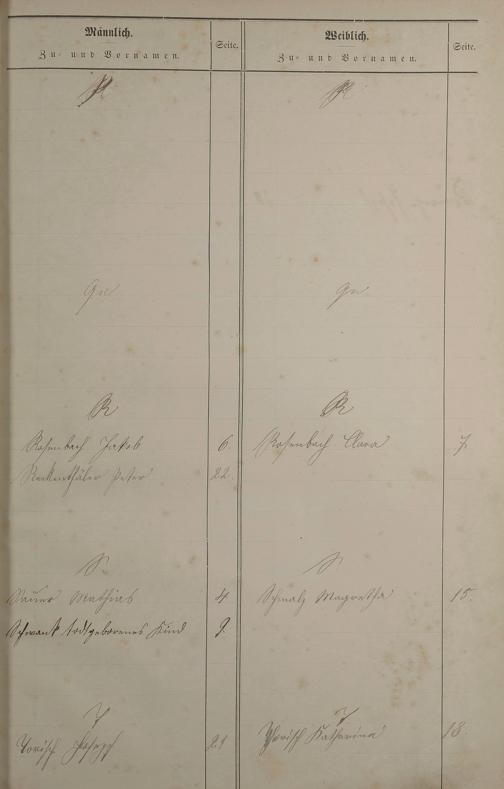 Männlich.
Zu- und Vornamen.
Seite.
Weiblich.
Zu- und Vornamen.
Seite.
P
P
Qu
Qu
R
R
Rosenbach Jakob 6.
Rosenbach Clara 7.
Reckenthäler Peter 22.
S
S
Sauer Mathias 4
Schmalz Magretha 15.
Schwank todtgeborenes Kind 9.
T
T
Torisch Joseph 21
Katharina 18.